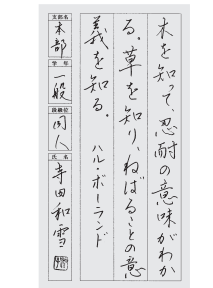 木を知って、忍耐の意味がわか
る。草を知り、ねばることの意
義を知る。　ハル・ボーランド
支部名
本部
学年
一般
段級位
同人
氏名
寺田和雪